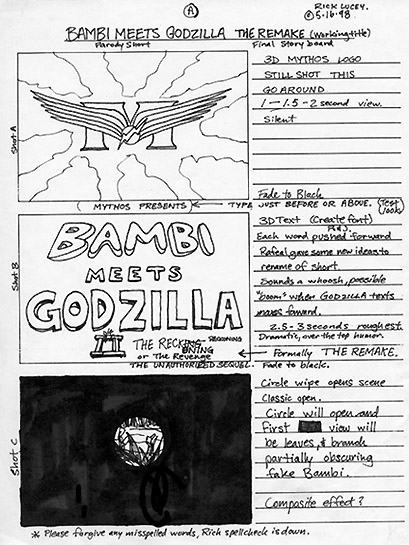 RICK LUCEY.
A
© 5-16-98
BAMBI MEETS GODZILLA THE REMAKE (Working title)
Parody Short
Final Story board
Shot A
3D MYTHOS LOGO
STILL SHOT THIS
GO AROUND
1 — 1.5 - 2 second view.
Silent
Fade to Black
( MYTHOS PRESENTS ) ← TYPE JUST BEFORE OR ABOVE. (Test looks)
Shot B
BAMBI
MEETS
GODZILLA
III
THE RECKENING
RECKONING
or The Revenge
THE UNAUTHORIZED SEQUEL.
3D Text (Create font)
Each word pushed forward
Rafeal gave some new ideas to
rename of short.
Sounds a whoosh, possible
"boom" when GODZILLA texts
moves forward.
2.5 - 3 seconds roughest.
Dramatic, over the top humor.
← Formally THE REMAKE.
Fade to black.
Shot C
Circle wipe opens scene
Classic open.
Circle will open and
first view will
be leaves, & branch
partially obscuring
fake Bambi.
Composite effect?
* Please forgive any misspelled words, Rich spellcheck is down.